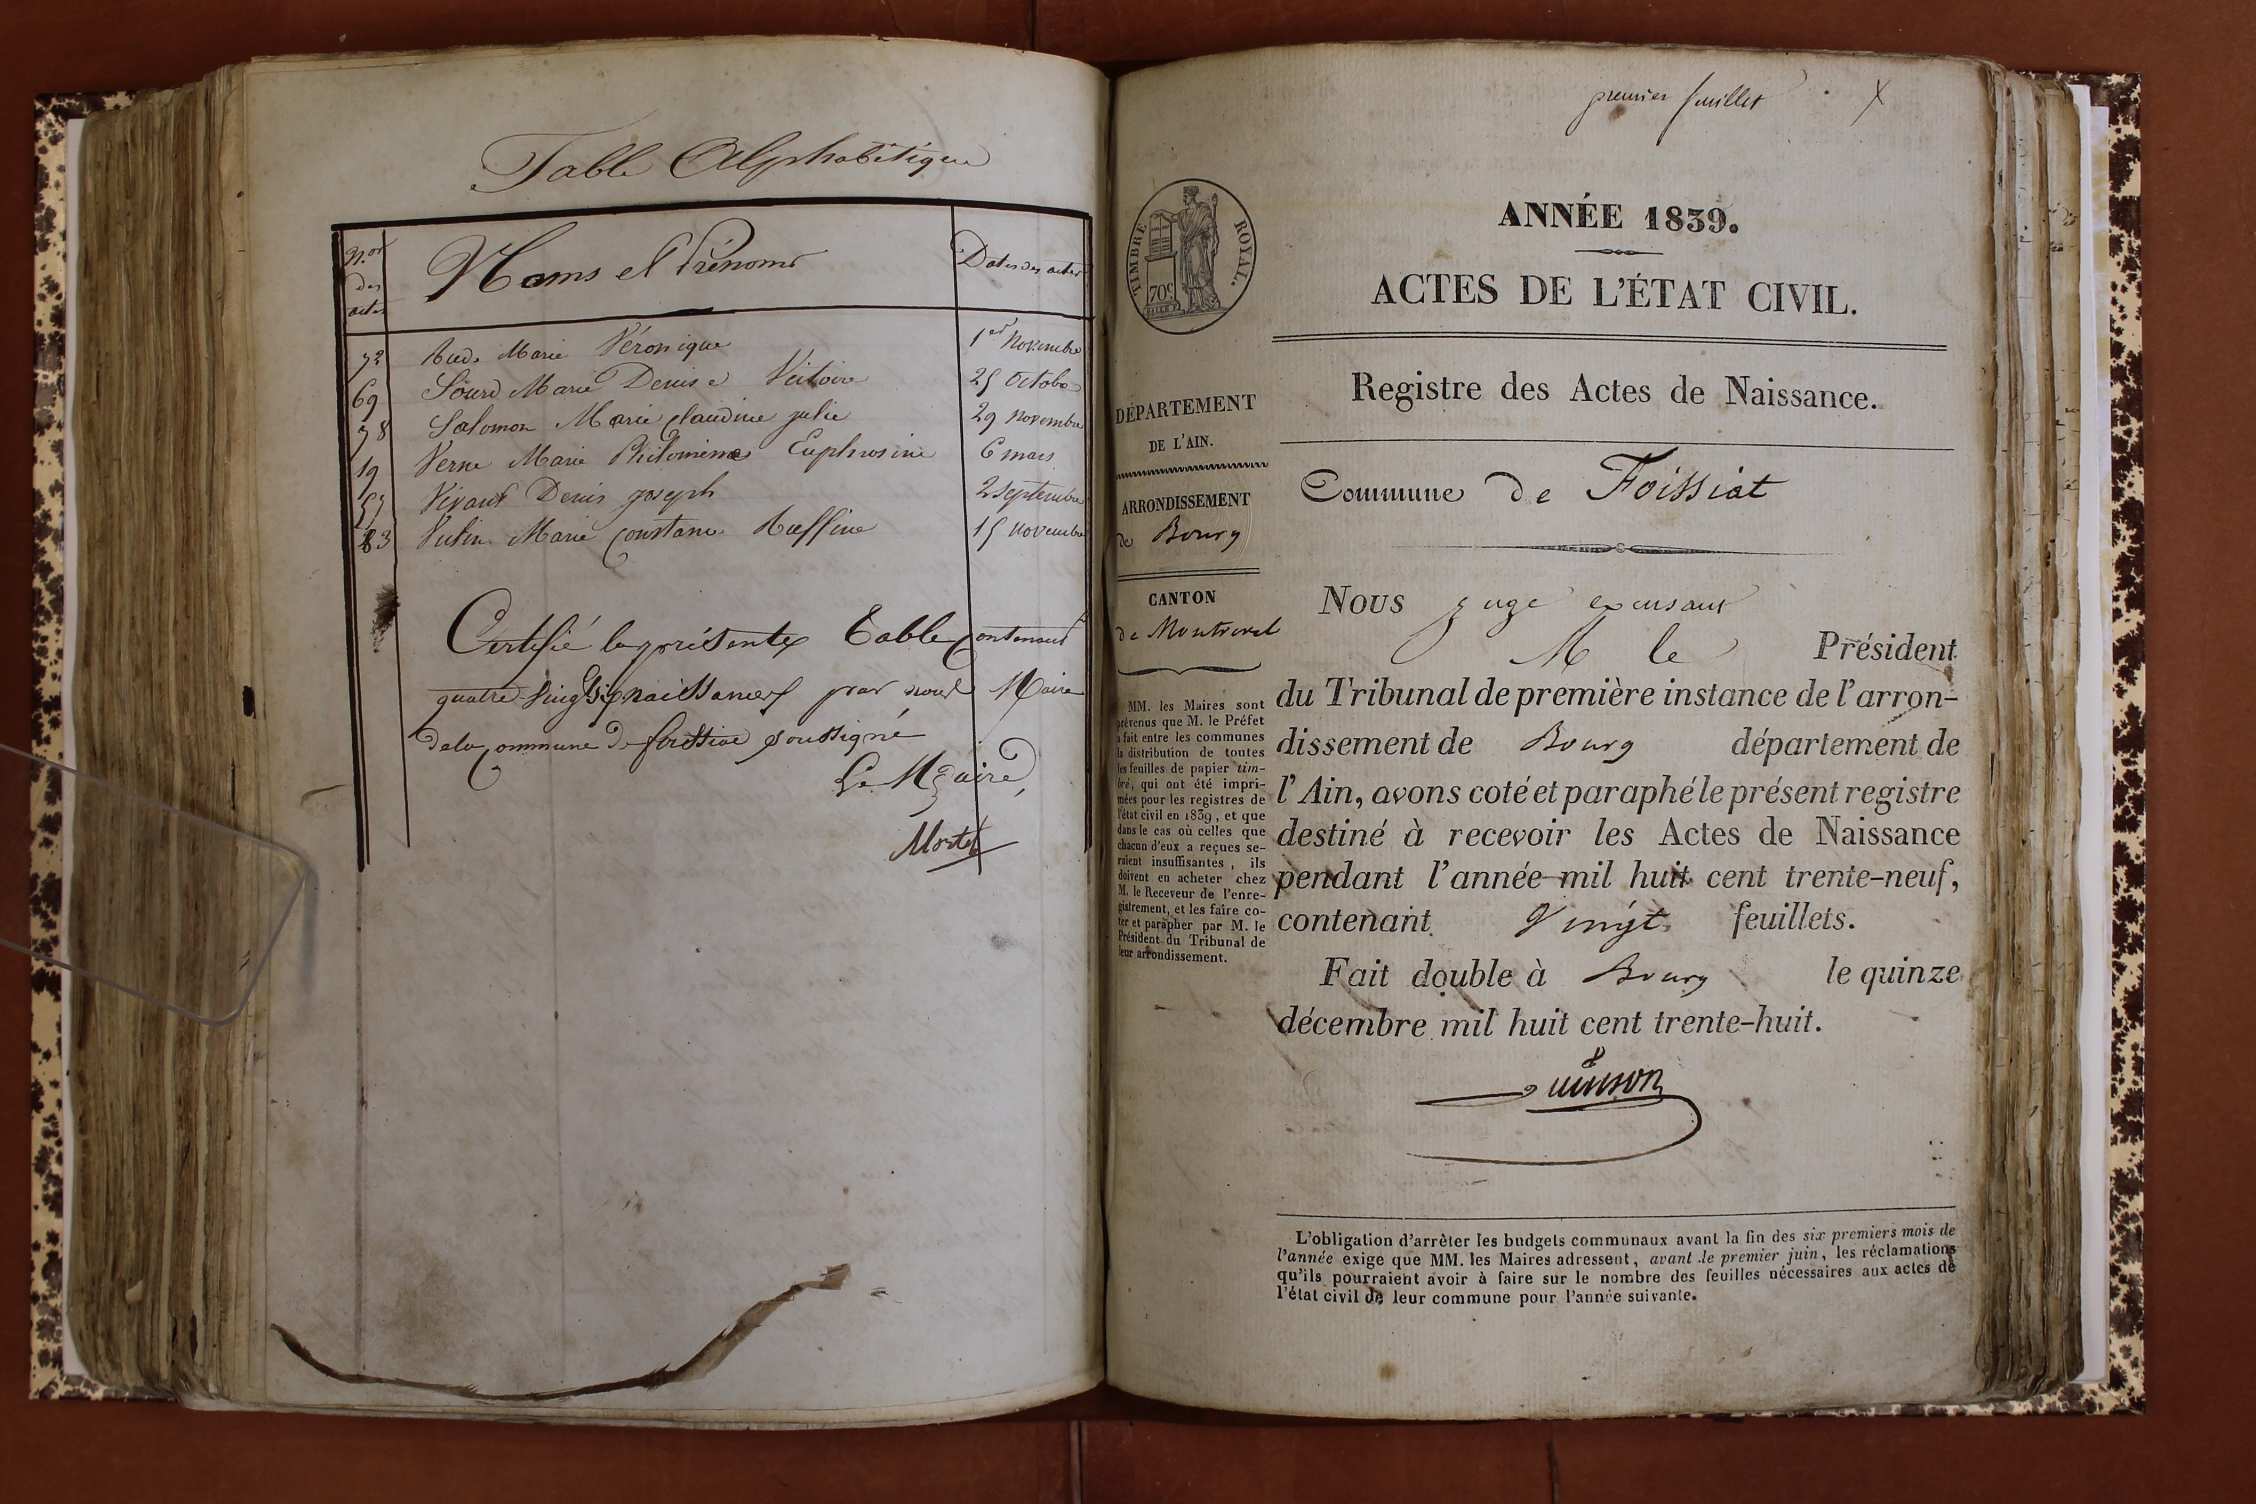 Table Alphabétique
N.os des actes
Noms et Prénoms
Dates des actes
72 Marie Véronique 1er Novembre
69 Sourd Marie Denise Victoire 25 Octobre
78 Salomon Marie Claudine julie 29 Novembre
19 Verne Marie Philomène Euphrosine 6 mars
57 Vivant Denis joseph 2 Septembre
83 Marie Constance 15 Novembre
Certifié la présente Table Contenant
quatre vingt six naissances par nous Maire
de la Commune de foissiat soussigné
Le Maire,
Mortel
premier feuillet
TIMBRE ROYAL.
70c
ANNÉE 1839.
ACTES DE L'ÉTAT CIVIL.
Registre des Actes de Naissance.
DÉPARTEMENT
DE L'AIN.
ARRONDISSEMENT
de Bourg
CANTON
de Montrevel
MM. les Maires sont
prévenus que M. le Préfet
a fait entre les communes
la distribution de toutes
les feuilles de papier tim-
bré, qui ont été impri-
mées pour les registres de
l'état civil en 1839, et que
dans le cas où celles que
chacun d'eux a reçues se-
raient insuffisantes, ils
doivent en acheter chez
M. le Receveur de l'enre-
gistrement, et les faire co-
ter et parapher par M. le
Président du Tribunal de
leur arrondissement.
Commune de Foissiat
Nous juge excusant
M le Président
du Tribunal de première instance de l'arron-
dissement de Bourg département de
l'Ain, avons coté et paraphé le présent registre
destiné à recevoir les Actes de Naissance
pendant l'année mil huit cent trente-neuf,
contenant Vingt feuillets.
Fait double à Bourg le quinze
décembre mil huit cent trente-huit.
L'obligation d'arrêter les budgets communaux avant la fin des six premiers mois de
l'année exige que MM. les Maires adressent, avant le premier juin, les réclamations
qu'ils pourraient avoir à faire sur le nombre des feuilles nécessaires aux actes de
l'état civil de leur commune pour l'année suivante.